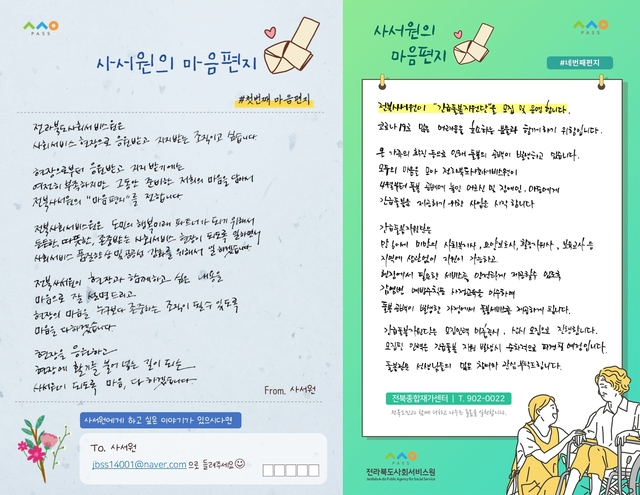 PASS
사서원의 마음편지
#첫번째 마음편지
전라북도사회서비스원은
사회서비스 현장으로 응원받고 지지받는 조직이고 싶습니다
현장으로부터 응원받고 지지받기에는
여전히 부족하지만 그동안 준비한 저희의 마음을 담아서
전북사서원의 "마음편지"를 전합니다
전북사서원은 도민의 행복미래 파트너가 되기 위해서
든든한, 따뜻한, 존중받는 사회서비스 현장이 되도록 일하면서
사회서비스 품질향상 및 공공성 강화를 위해서 일 하겠습니다
전북사서원이 현장과 함께하고 싶은 내용을
마음으로 전해 드리고
현장의 마음을 누구보다 존중하는 조직이 될 수 있도록
마음을 다하겠습니다
현장을 응원하고
현장에 활기를 불어 넣는 길이 되는
사서원이 되도록 마음, 다 하겠습니다
From. 사서원
사서원에게 하고 싶은 이야기가 있으시다면
To. 사서원
jbss14001@naver.com 으로 들려주세요
PASS
사서원의
마음편지
#네번째편지
전북사서원이 "긴급돌봄지원단"을 모집 및 운영합니다.
코로나19로 많은 어려움을 호소하는 분들과 함께하기 위함입니다.
온 가족의 확진 등으로 인해 돌봄의 공백이 발생하고 있습니다.
모두의 마음을 모아 전라북도사회서비스원이
긴급돌봄을 제공하기 위한 사업을 시작합니다
긴급돌봄지원단은
만 60세 미만의 사회복지사, 요양보호사, 활동지원사, 보육교사 등
지역에 상관없이 지원이 가능하고
현장에서 필요한 서비스를 안전하게 제공할 수 있도록
감염병 예방수칙 등 사전교육을 이수하여
돌봄공백이 발생한 가정에서 돌봄서비스를 제공하게 됩니다.
긴급돌봄지원단은 상시 모집으로 진행됩니다.
돌봄 선생님들의 많은 참여와 관심 부탁드립니다.
전북종합재가센터 | T. 902-0022
전라북도사회서비스원
Jeollabukdo Public Agency for Social Service